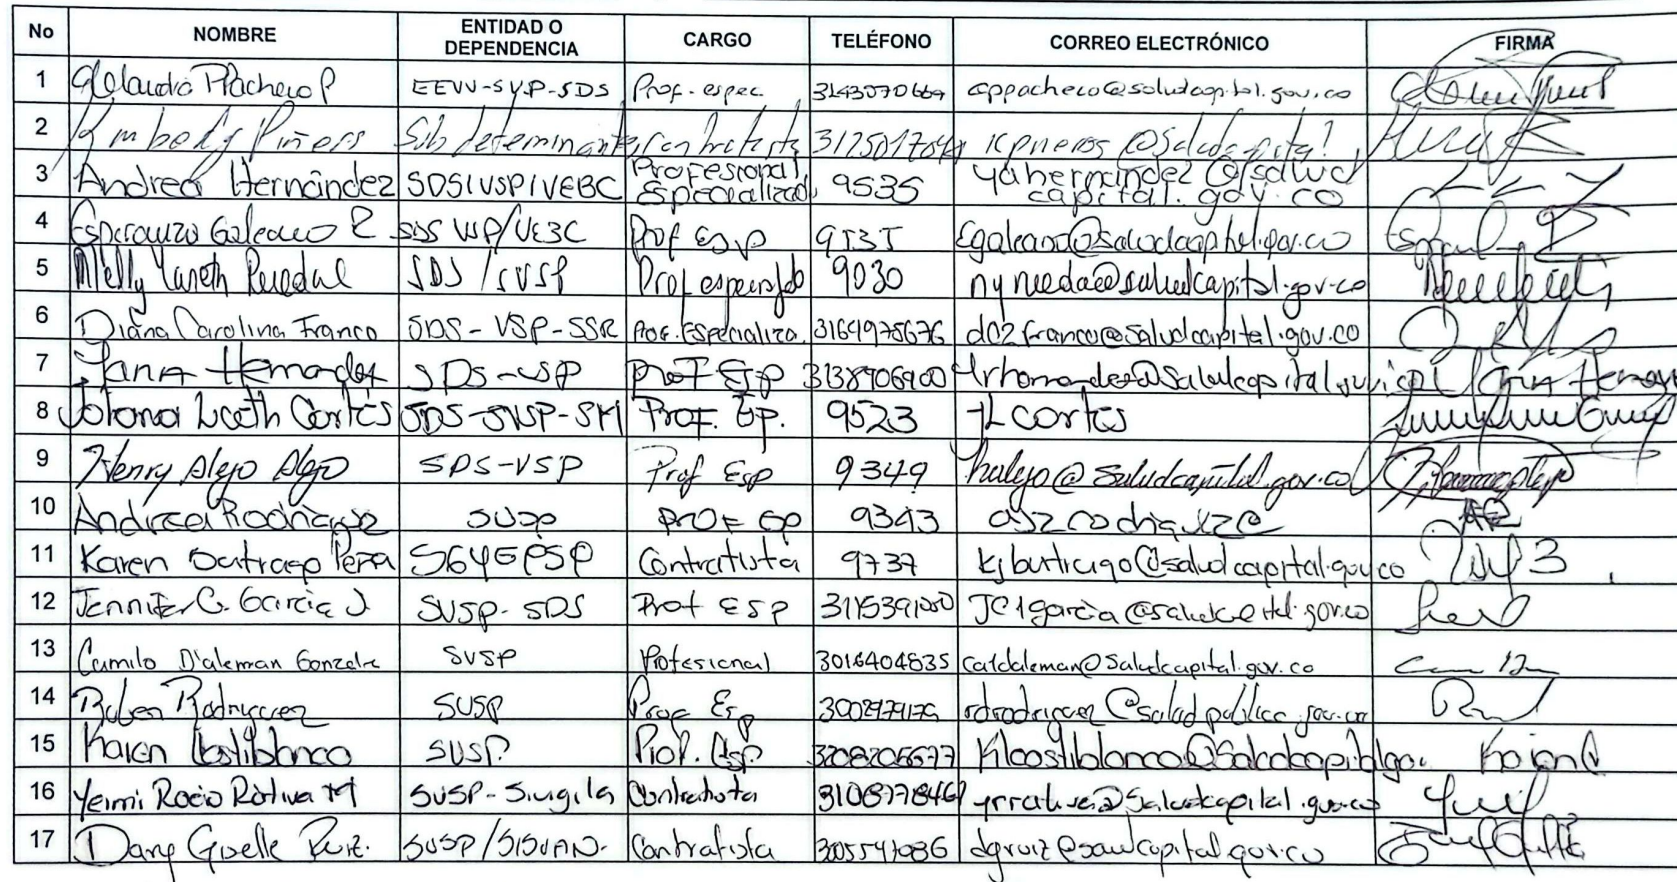 No NOMBRE ENTIDAD O DEPENDENCIA CARGO TELÉFONO CORREO ELECTRÓNICO FIRMA
1 Claudia P Pacheco P EEVV-SVP-SDS Prof. espec. cppacheco@saludcapital.gov.co
2 Piñeros Sub determinantes contratista kpineros@saludcapital
3 Andrea Hernández SDS/VSP/VEBC Profesional Especializado 9535 yahernandez@saludcapital.gov.co
4 Esperanza Galeano R SDS VSP/VEBC Prof Esp 9535 Egaleano@saludcapital.gov.co
5 Nelly Yaneth Rueda SDS / SVSP Prof especializado 9030 nyrueda@saludcapital.gov.co
6 Diana Carolina Franco SDS - VSP - SSR Prof. Especializa. 3164975676 dc2franco@saludcapital.gov.co
7 Hernandez SDS - VSP Prof Esp 3138906900
8 Johana Liceth Cortés SDS-SVSP-SM Prof. Ep. 9523 JLcortes
9 Henry Alejo Alejo SDS-VSP Prof Esp 9349 halejo@saludcapital.gov.co
10 Andrea Rodríguez SVSP Prof Esp 9343 AR
11 Karen Buitrago Peña SGYEPSP Contratista 9737 kjbuitrago@saludcapital.gov.co
12 Jennifer C. Garcia J. SVSP-SDS Prof ESP JC1garcia@saludcapital.gov.co
13 Camilo D'aleman Gonzalez SVSP Profesional 3016404635 catdaleman@saludcapital.gov.co
14 Ruben Rodriguez SVSP Prof Esp 3002979179
15 Karen Castiblanco SVSP. Prof. Esp. Klcastiblanco@saludcapital.go. Karen C
16 Yeimi Rocio Rativa M SVSP-Sivigila Contratista yrrativa@saludcapital.gov.co
17 Dany Giselle Ruiz. SVSP/SISVAN. Contratista dgruiz@saludcapital.gov.co